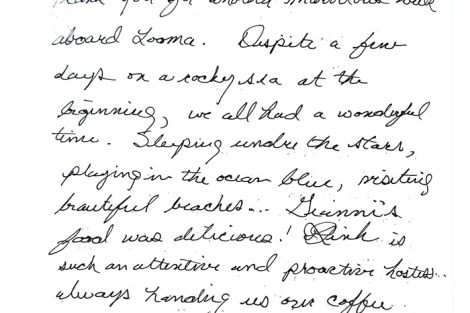 thank you for another marvelous week
aboard Looma. Despite a few
days on a rocky sea at the
beginning, we all had a wonderful
time. Sleeping under the stars,
playing in the ocean blue, visiting
beautiful beaches... Gianni's
food was delicious! is
such an attentive and proactive hostess...
always handing us our coffee